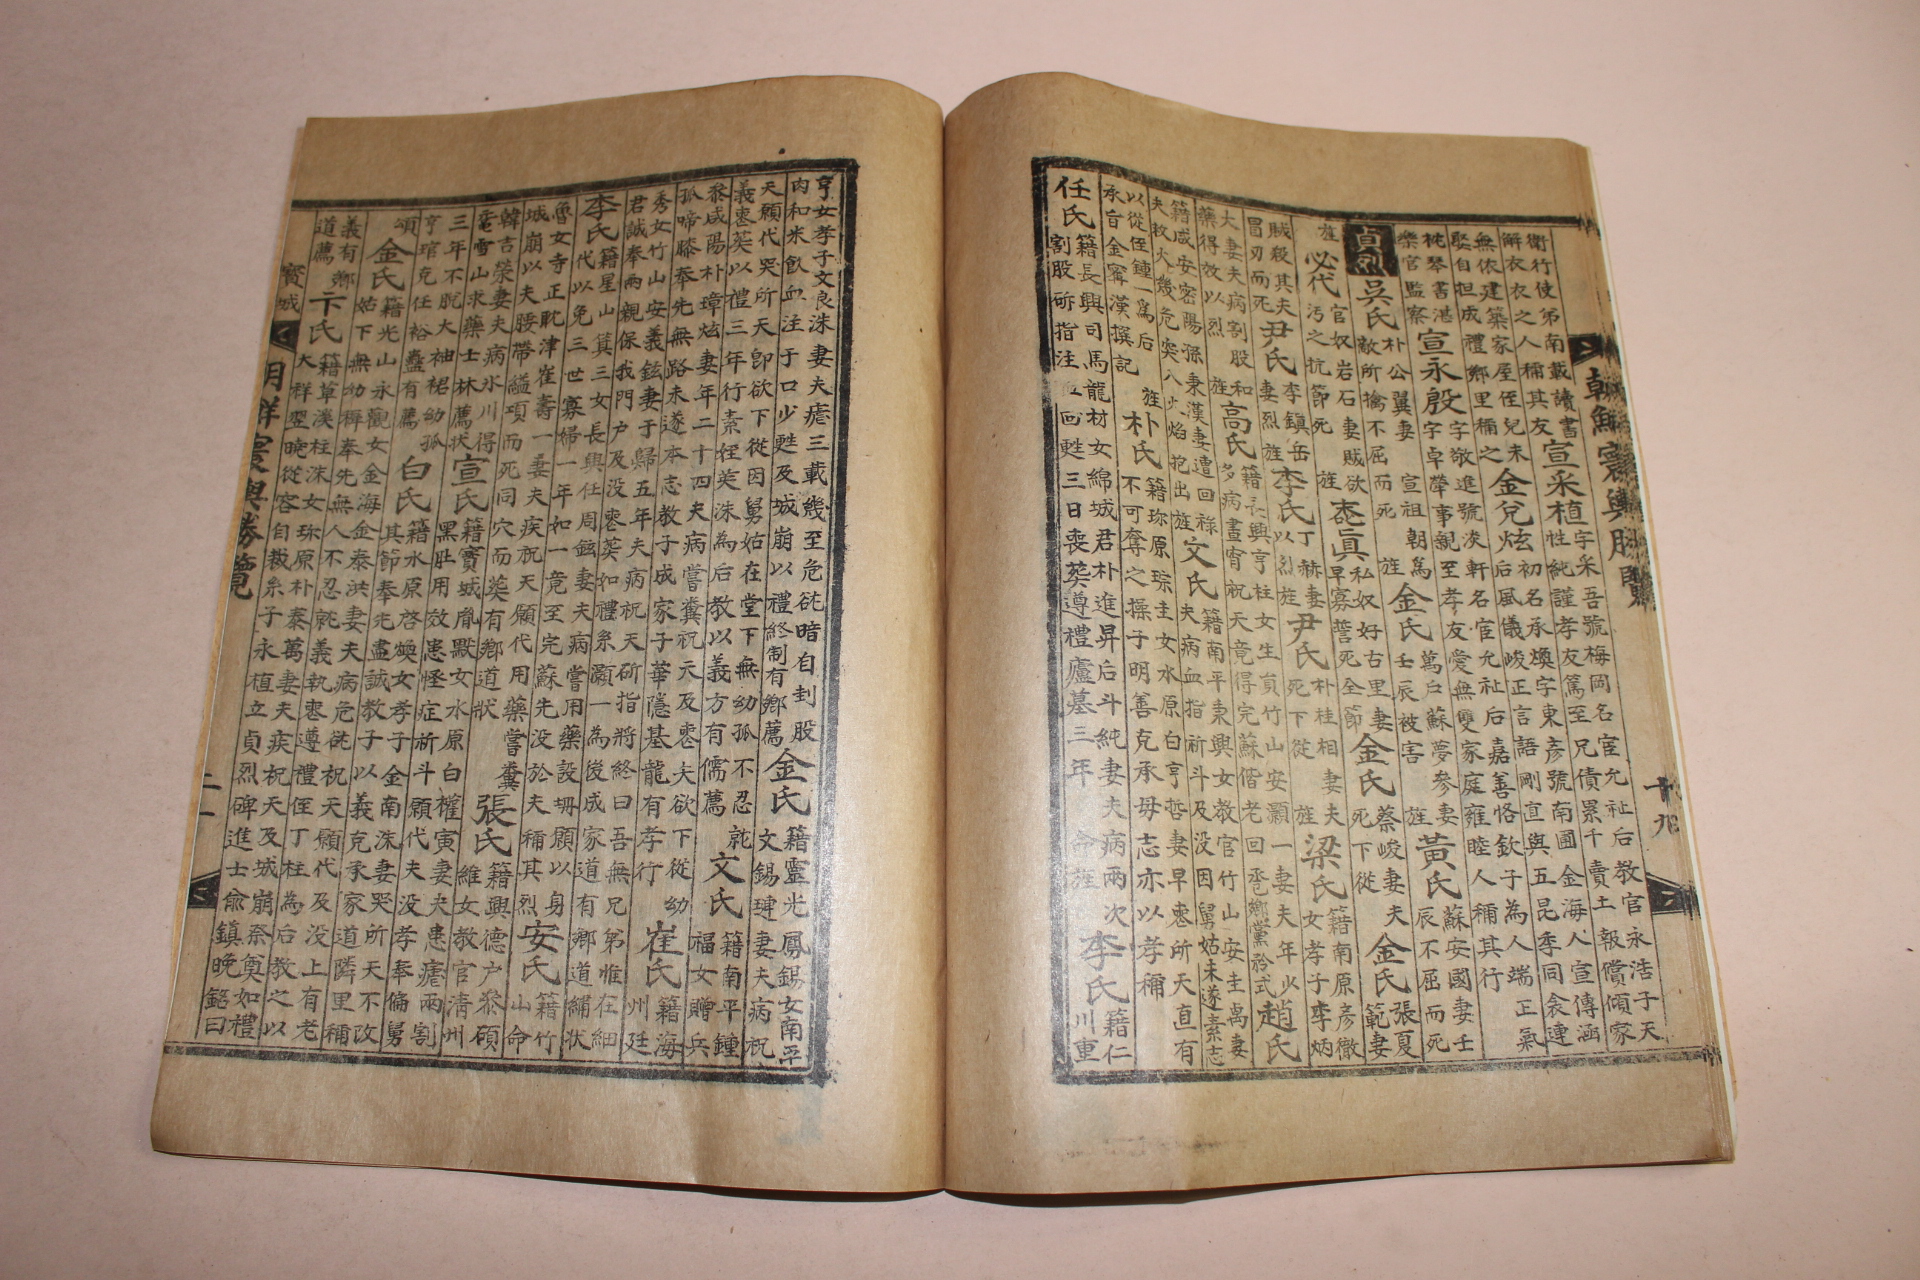 朝鮮寰輿勝覽 十九
衛行使弟南載讀書
解衣衣之人稱其友
宣采植
字采吾號梅岡名宦允祉后教官永浩子天
性純謹孝友篤至兄債累千賣土報償傾家
無依建築家屋侄兒未
娶自担成禮鄉里稱之
金兌炫
初名承煥字東彥號南圃金海人宣傳涵
后風儀峻正言語剛直與五昆季同衾連
枕琴書湛
樂官監察
宣永殷
字敬進號淩軒名宦允祉后嘉善恪欽子為人端正氣
字卓犖事親至孝友愛無雙家庭雍睦人稱其行
貞烈
吳氏
朴公翼妻
敵所擒不屈而死
宣祖朝
旌
金氏
萬戶蘇夢參妻
壬辰被害
旌
黃氏
蘇安國妻壬
辰不屈而死
旌
必代
官奴岩石妻賊欲
污之抗節死
旌
真
私奴好古里妻
早寡誓死全節
金氏
蔡峻妻夫
死下從
金氏
張夏
範妻
賊殺其夫
冒刃而死
尹氏
李鎮岳
妻烈旌
李氏
丁赫妻
以烈旌
尹氏
朴柱相妻夫
死下從
旌
梁氏
籍南原彥徵
女孝子李炳
大妻夫病割股和
藥得效以烈旌
高氏
籍長興亨柱女生員竹山安灝一妻夫年少
多病晝宵祝天竟得完蘇偕老回巹鄉黨矜式
趙氏
籍咸安密陽孫秉漢妻遭回祿
夫救火幾危突入火焰抱出旌
文氏
籍南平秉興女教官竹山安圭禹妻
夫病血指祈斗及没因舅姑未遂素志
以從侄鍾一為后
承旨金甯漢撰記
旌
朴氏
籍珎原琮圭女水原白亨哲妻早喪所天直有
不可奪之操子明善克承毋志亦以孝稱
任氏
籍長興司馬龍材女綿城君朴進昇后斗純妻夫病兩次
割股斫指注血回甦三日喪葬遵禮廬墓三年 命旌
李氏
籍仁
川重
亨女孝子文良洙妻夫瘧三載幾至危谻暗自刲股
肉和米飲血注于口少甦及城崩以禮終制有鄉薦
金氏
籍靈光鳳錫女南平
文錫璉妻夫病祝
天願代哭所天卽欲下從因舅姑在堂下無幼孤不忍就
義喪葬以禮三年行素姪英洙為后教以義方有儒薦
文氏
籍南平鍾
福女贈兵
參咸陽朴璋炫妻年二十四夫病嘗糞祝天及喪夫欲下從幼
孤啼膝奉先無路未遂本志教子成家子華隱基龍有孝行
崔氏
籍海
州廷
秀女竹山安義鉉妻于歸五年夫病祝天斫指將終曰吾無兄弟惟在細
君誠奉兩親保我門户及没喪葬如禮糸灝一為後成家道有鄉道繡狀
李氏
籍星山箕三女長興任周鉉妻夫病嘗用藥設坍願以身
代以免三世寡婦一年如一竟至完蘇先没於夫稱其烈
安氏
籍竹
山命
魯女寺正耽津崔壽一妻夫疾祝天願代用藥嘗糞
城崩以夫腰帶縊項而死同穴而葬有鄉道狀
張氏
籍興德户參碩
維女教官清州
韓吉榮妻夫病氷川得
竜雪山求藥士林薦狀
宣氏
籍寶城胤默女水原白權寅妻夫患瘧兩割
黑肚用效患怪症祈斗願代夫没孝奉偏舅
三年不脫大袖裙幼孤
亨琯克任裕蠱有薦
白氏
籍水原啓煥女孝子金南洙妻哭所天不改
其節奉死盡誠教子以義克承家道隣里稱
頌
金氏
籍光山永觀女金海金泰洪妻夫病危谻祝天願代及没上有老
姑下無幼稱奉先無人不忍就義執喪遵禮侄丁柱為后教之以
義有鄉
道薦
卞氏
籍草溪柱洙女珎原朴泰萬妻夫疾祝天及城崩奈奠如禮
大祥翌晚從容自裁糸子永植立貞烈碑進士兪鎮晚銘曰
寶城
寰輿勝覽